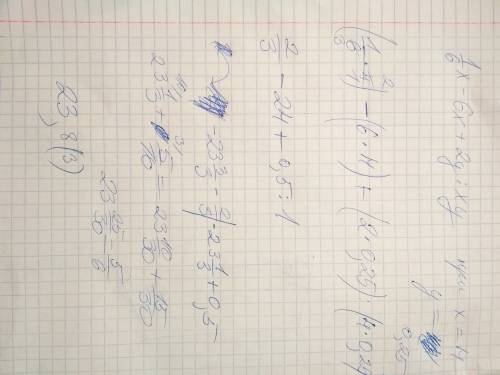 1/6x - 6x + 2y : xy при x = 4
y = 0,25
(1/6 · 4) - (6 · 4) + (2 · 0,25) : (4 · 0,25)
2/3 - 24 + 0,5 : 1
23 1/3 + 5/10 = 23 10/30 + 15/30
23 25/30 = 5/6
23,8(3)